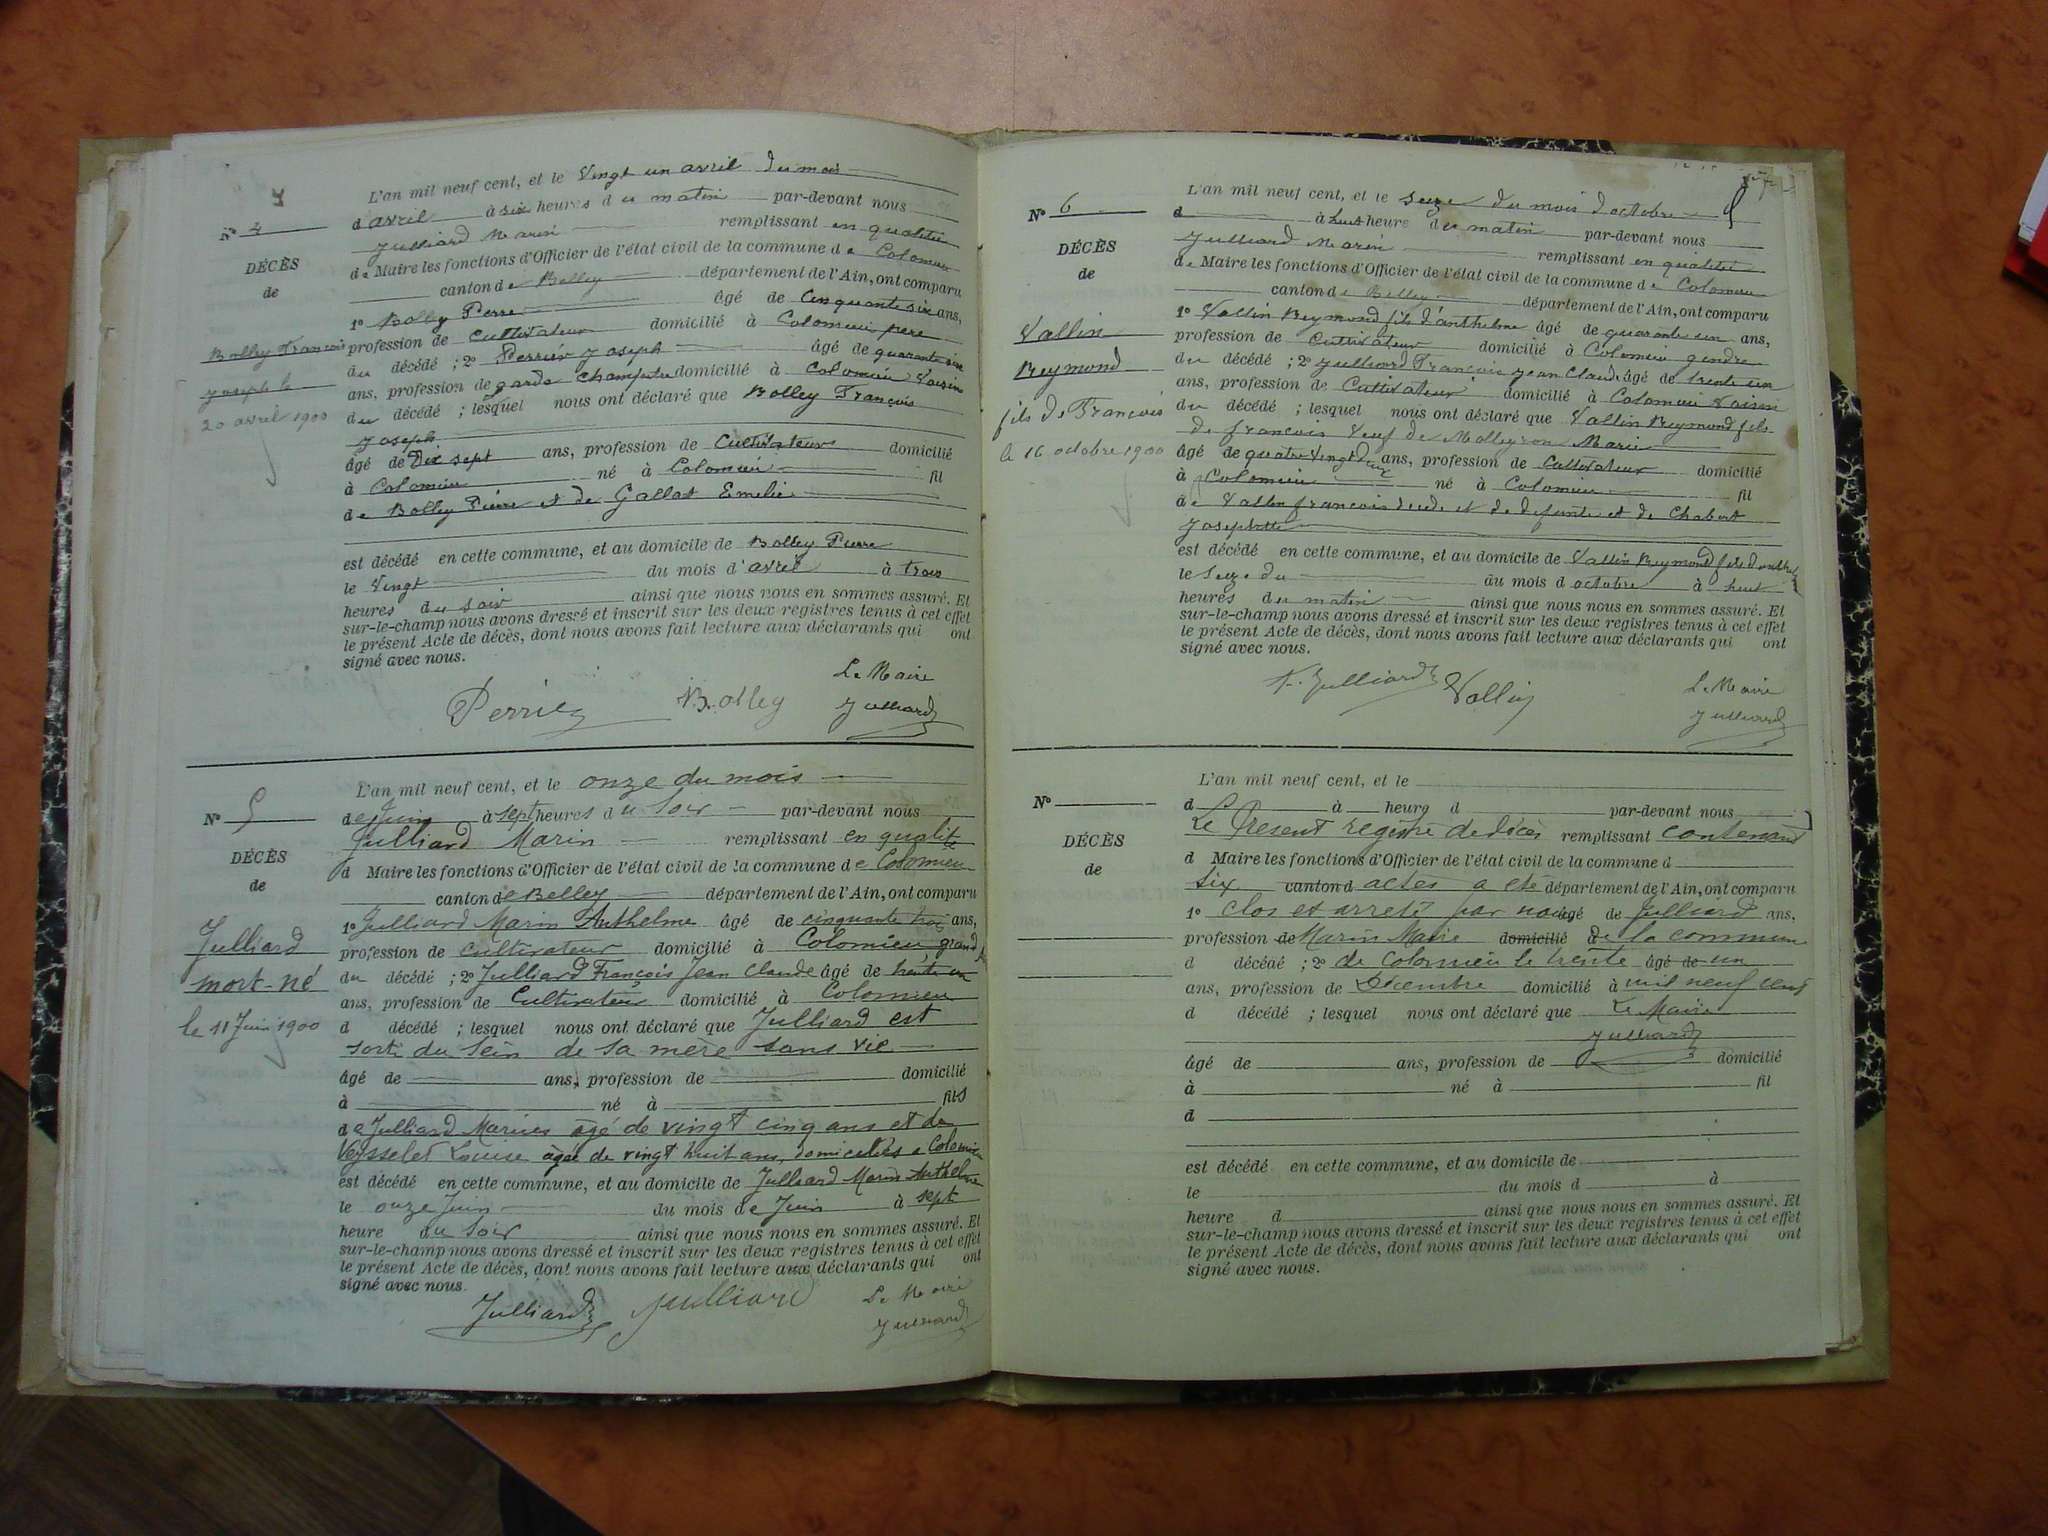 4
L'an mil neuf cent, et le Vingt un avril du mois
d avril à six heures du matin par-devant nous
Julliard Marin remplissant en qualitée
de Maire les fonctions d'Officier de l'état civil de la commune de Colomieu
canton de Belley département de l'Ain, ont comparu
1º Bolley Pierre âgé de Cinquante six ans,
profession de Cultivateur domicilié à Colomieu pere
du décédé ; 2º Perrier Joseph âgé de quarante six
ans, profession de garde Champetre domicilié à Colomieu Voisin
du décédé ; lesquel nous ont déclaré que Bolley François
Joseph
âgé de Dix sept ans, profession de Cultivateur domicilié
à Colomieu né à Colomieu fil
de Bolley Pierre et de Gallat Emelie
est décédé en cette commune, et au domicile de Bolley Pierre
le Vingt du mois d'avril à trois
heures du soir ainsi que nous nous en sommes assuré. Et
sur-le-champ nous avons dressé et inscrit sur les deux registres tenus à cet effet
le présent Acte de décès, dont nous avons fait lecture aux déclarants qui ont
signé avec nous.
Nº 4
DÉCÈS
de
Bolley François
Joseph le
20 avril 1900
Le Maire
Perrier Bolley Julliard
L'an mil neuf cent, et le onze du mois
de Juin à sept heures du Soir par-devant nous
Julliard Marin remplissant en qualité
d Maire les fonctions d'Officier de l'état civil de la commune de Colomieu
canton de Belley département de l'Ain, ont comparu
1º Julliard Marin Anthelme âgé de cinquante trois ans,
profession de cultivateur domicilié à Colomieu grand
du décédé ; 2º Julliard François Jean Claude âgé de trente un
ans, profession de Cultivateur domicilié à Colomieu
d décédé ; lesquel nous ont déclaré que Julliard est
sorti du sein de sa mère sans vie
âgé de ans, profession de domicilié
à né à fils
de Julliard Marius âgé de vingt cinq ans et de
Veysselet Louise âgée de vingt huit ans, domiciliés a Colomieu
est décédé en cette commune, et au domicile de Julliard Marin Anthelme
le onze Juin du mois de Juin à sept
heure du Soir ainsi que nous nous en sommes assuré. Et
sur-le-champ nous avons dressé et inscrit sur les deux registres tenus à cet effet
le présent Acte de décès, dont nous avons fait lecture aux déclarants qui ont
signé avec nous.
Nº 5
DÉCÈS
de
Julliard
mort-né
le 11 Juin 1900
Le Maire
Julliard Julliard Julliard
L'an mil neuf cent, et le seize du mois d'octobre
d à huit heure du matin par-devant nous
Julliard Marin remplissant en qualitée
de Maire les fonctions d'Officier de l'état civil de la commune de Colomieu
canton de Belley département de l'Ain, ont comparu
1º Vallin Reymond fils d'anthelme âgé de quarante un ans,
profession de Cultivateur domicilié à Colomieu gendre
du décédé ; 2º Julliard François Jean Claude âgé de trente un
ans, profession de Cultivateur domicilié à Colomieu Voisin
du décédé ; lesquel nous ont déclaré que Vallin Reymond fils
de francois Veuf de Molleyron Marie
âgé de quatre Vingt Deux ans, profession de Cultivateur domicilié
à Colomieu né à Colomieu fil
de Vallin francois et de defunte et de Chabert
Josephtte
est décédé en cette commune, et au domicile de Vallin Reymond fils d'anthel
le Seize du au mois d octobre à huit
heures du matin ainsi que nous nous en sommes assuré. Et
sur-le-champ nous avons dressé et inscrit sur les deux registres tenus à cet effet
le présent Acte de décès, dont nous avons fait lecture aux déclarants qui ont
signé avec nous.
Nº 6
DÉCÈS
de
Vallin
Reymond
fils de François
le 16 octobre 1900
Le Maire
F. Julliard Vallin Julliard
L'an mil neuf cent, et le
d à heure d par-devant nous
Le Present registre de décès remplissant contenant
d Maire les fonctions d'Officier de l'état civil de la commune d
six canton d actes a eté département de l'Ain, ont comparu
1º clos et arreté par nous âgé de Julliard ans,
profession de Marin Maire domicilié à de la commune
d décédé ; 2º de Colomieu le trente âgé de un
ans, profession de Décembre domicilié à mil neuf cent
d décédé ; lesquel nous ont déclaré que Le Maire
Julliard
âgé de ans, profession de domicilié
à né à fil
d
est décédé en cette commune, et au domicile de
le du mois d à
heure d ainsi que nous nous en sommes assuré. Et
sur-le-champ nous avons dressé et inscrit sur les deux registres tenus à cet effet
le présent Acte de décès, dont nous avons fait lecture aux déclarants qui ont
signé avec nous.
Nº
DÉCÈS
de